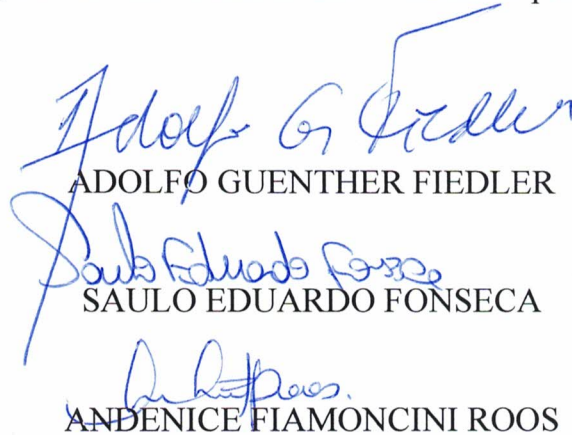 Adolfo G Fiedler
ADOLFO GUENTHER FIEDLER
Saulo Eduardo Fonseca
SAULO EDUARDO FONSECA
Roos.
ANDENICE FIAMONCINI ROOS